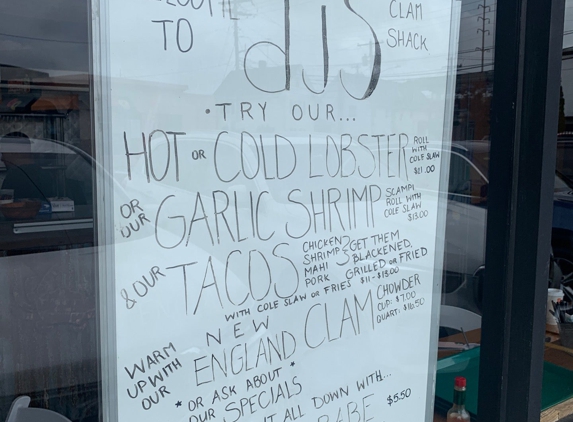 TO
dJS
CLAM
SHACK
•TRY OUR...
HOT OR COLD LOBSTER ROLL WITH COLE SLAW $21.00
OR OUR GARLIC SHRIMP SCAMPI ROLL WITH COLE SLAW $13.00
& OUR TACOS
CHICKEN
SHRIMP
MAHI
PORK
GET THEM
BLACKENED,
GRILLED OR FRIED
WITH COLE SLAW OR FRIES $11-$13.00
WARM
UP WITH
OUR
NEW
ENGLAND CLAM CHOWDER
CUP: $7.00
QUART: $16.50
* OR ASK ABOUT *
OUR SPECIALS
IT ALL DOWN WITH...
$5.50